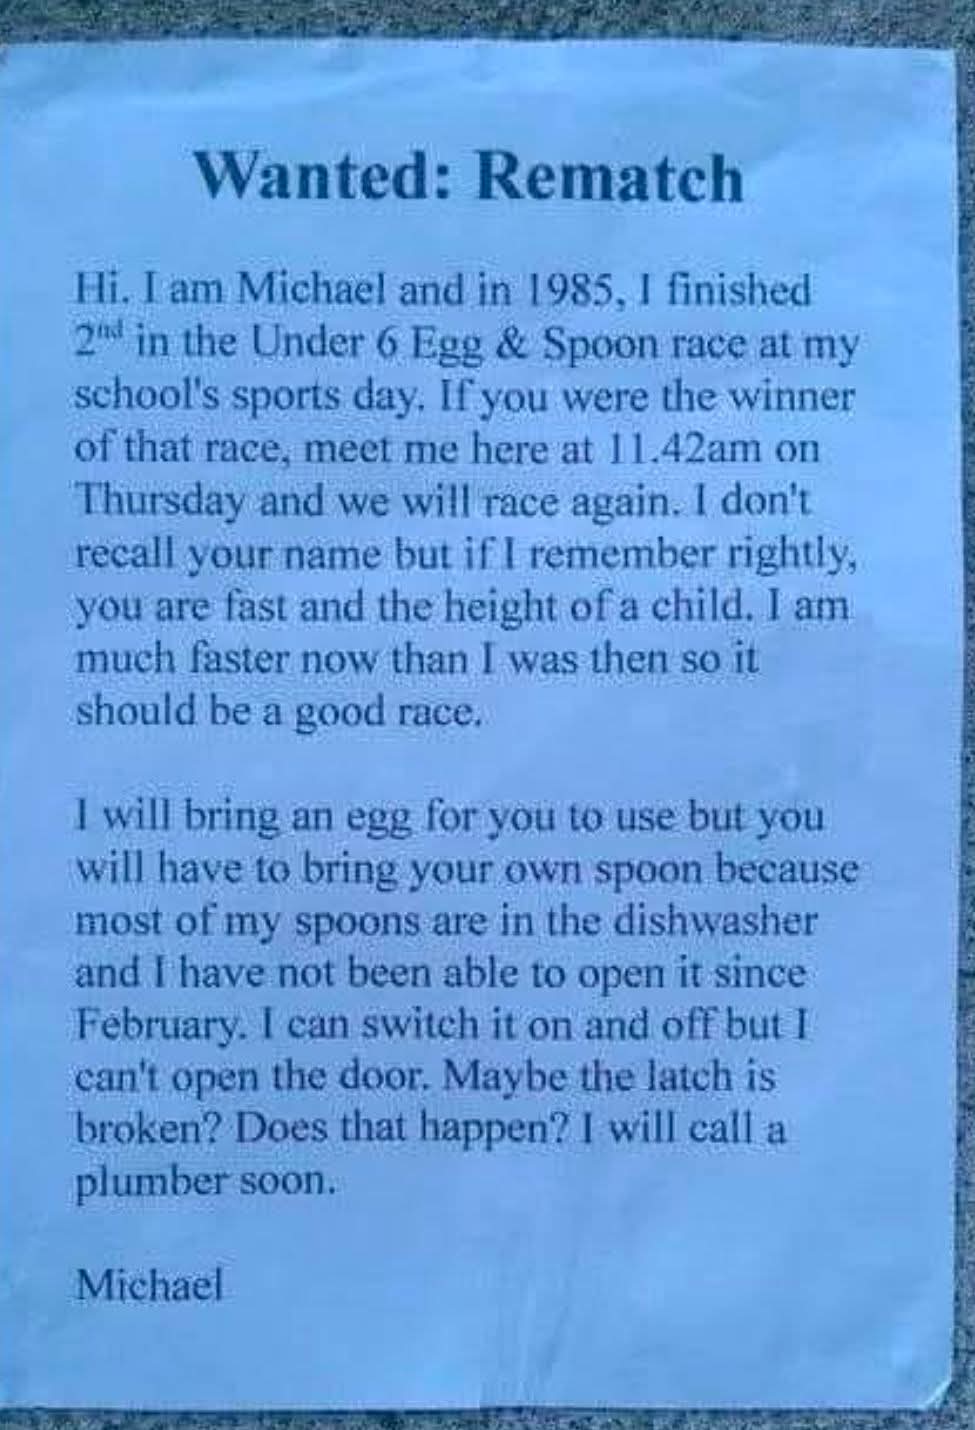 Wanted: Rematch
Hi. I am Michael and in 1985, I finished
2nd in the Under 6 Egg & Spoon race at my
school's sports day. If you were the winner
of that race, meet me here at 11.42am on
Thursday and we will race again. I don't
recall your name but if I remember rightly,
you are fast and the height of a child. I am
much faster now than I was then so it
should be a good race.
I will bring an egg for you to use but you
will have to bring your own spoon because
most of my spoons are in the dishwasher
and I have not been able to open it since
February. I can switch it on and off but I
can't open the door. Maybe the latch is
broken? Does that happen? I will call a
plumber soon.
Michael